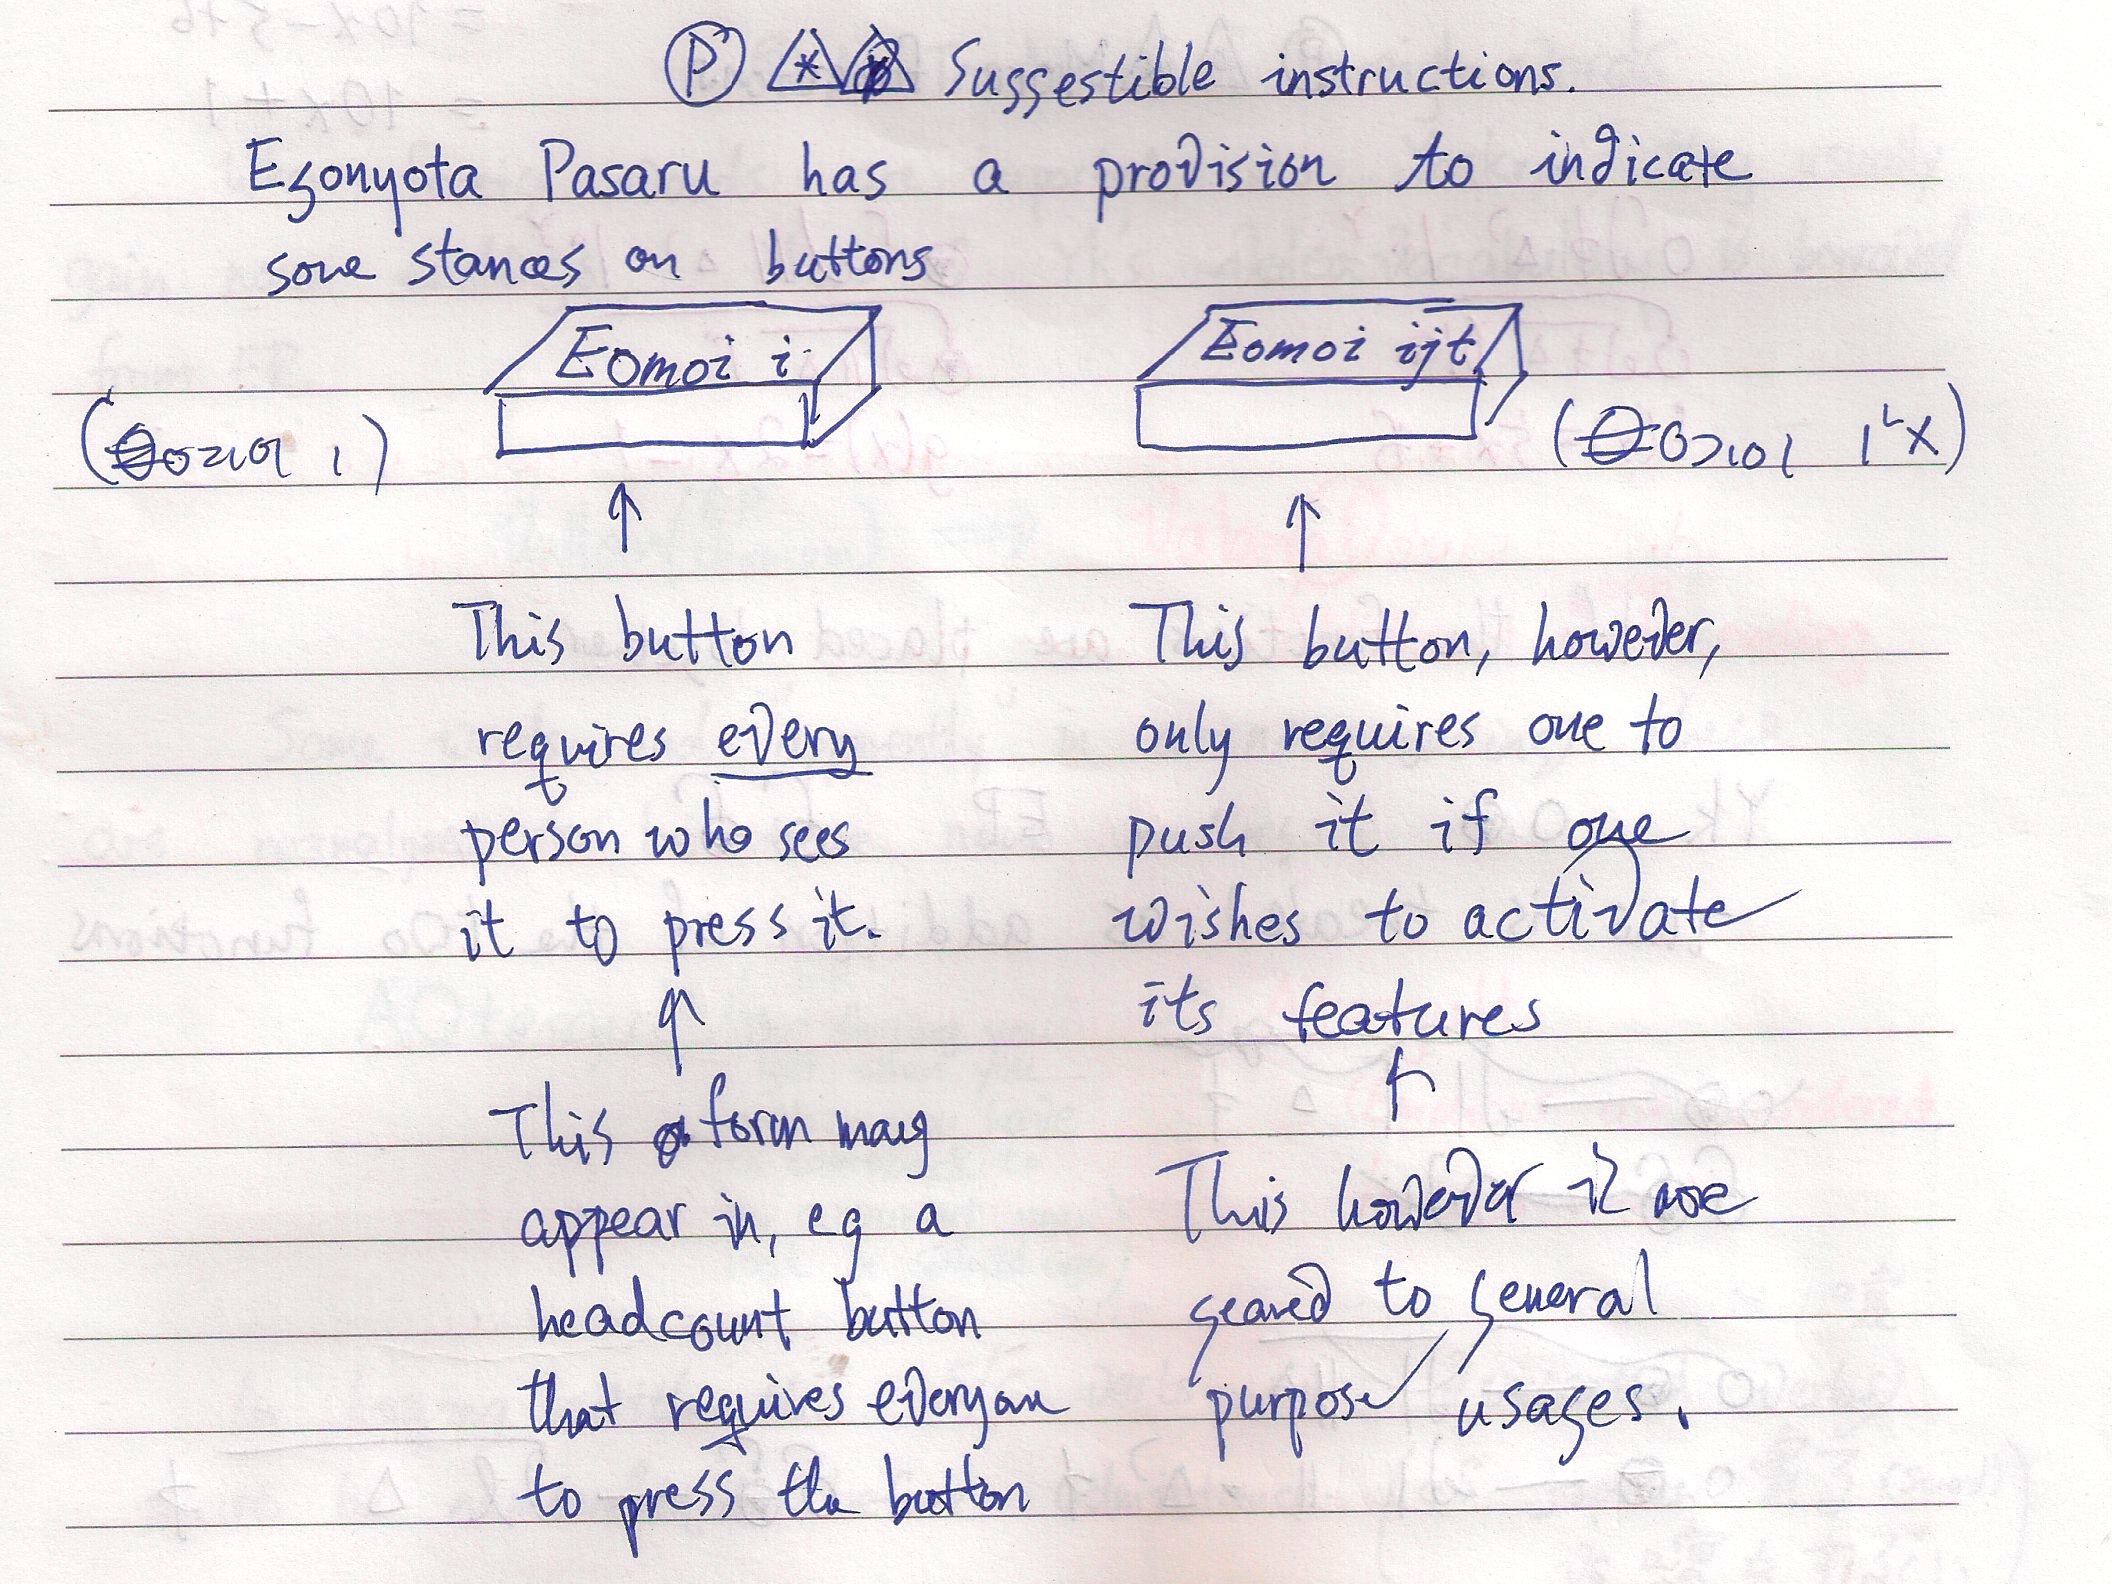 P Suggestible instructions.
Ezonyota Pasaru has a provision to indicate
some stances on buttons
Eomoi i
Eomoi ijt
This button
requires every
person who sees
it to press it.
This form may
appear in, eg a
headcount button
that requires everyone
to press the button
This button, however,
only requires one to
push it if one
wishes to activate
its features
This however is more
geared to general
purpose usages.